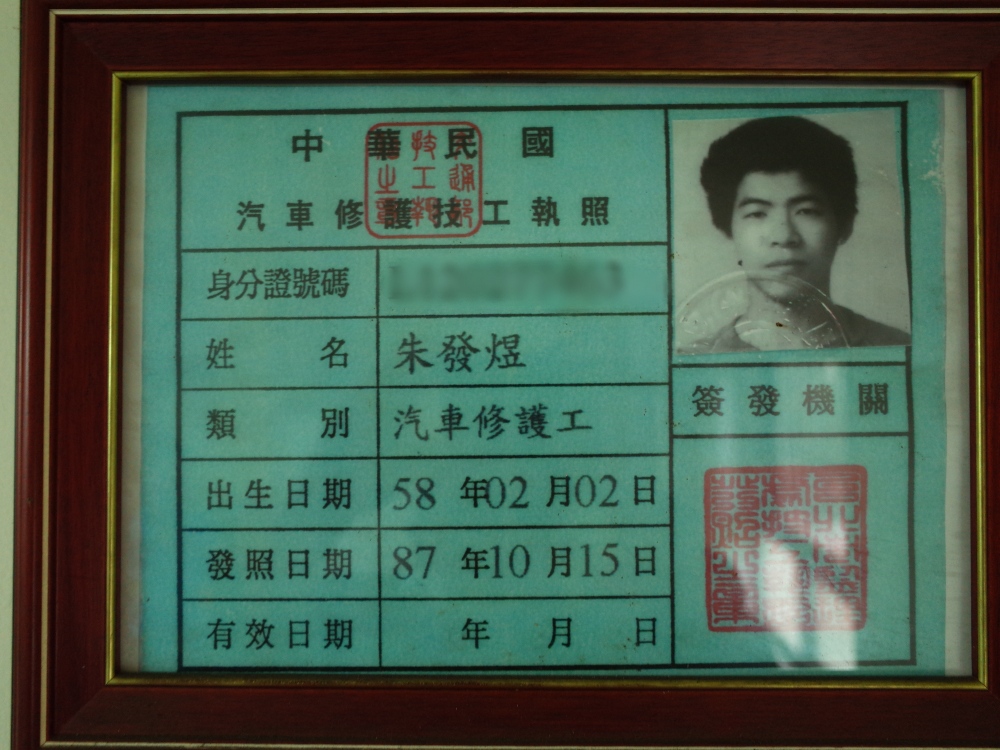 中華民國
汽車修護技工執照
身分證號碼
姓名 朱發煜
類別 汽車修護工
出生日期 58年02月02日
發照日期 87年10月15日
有效日期 年 月 日
簽發機關